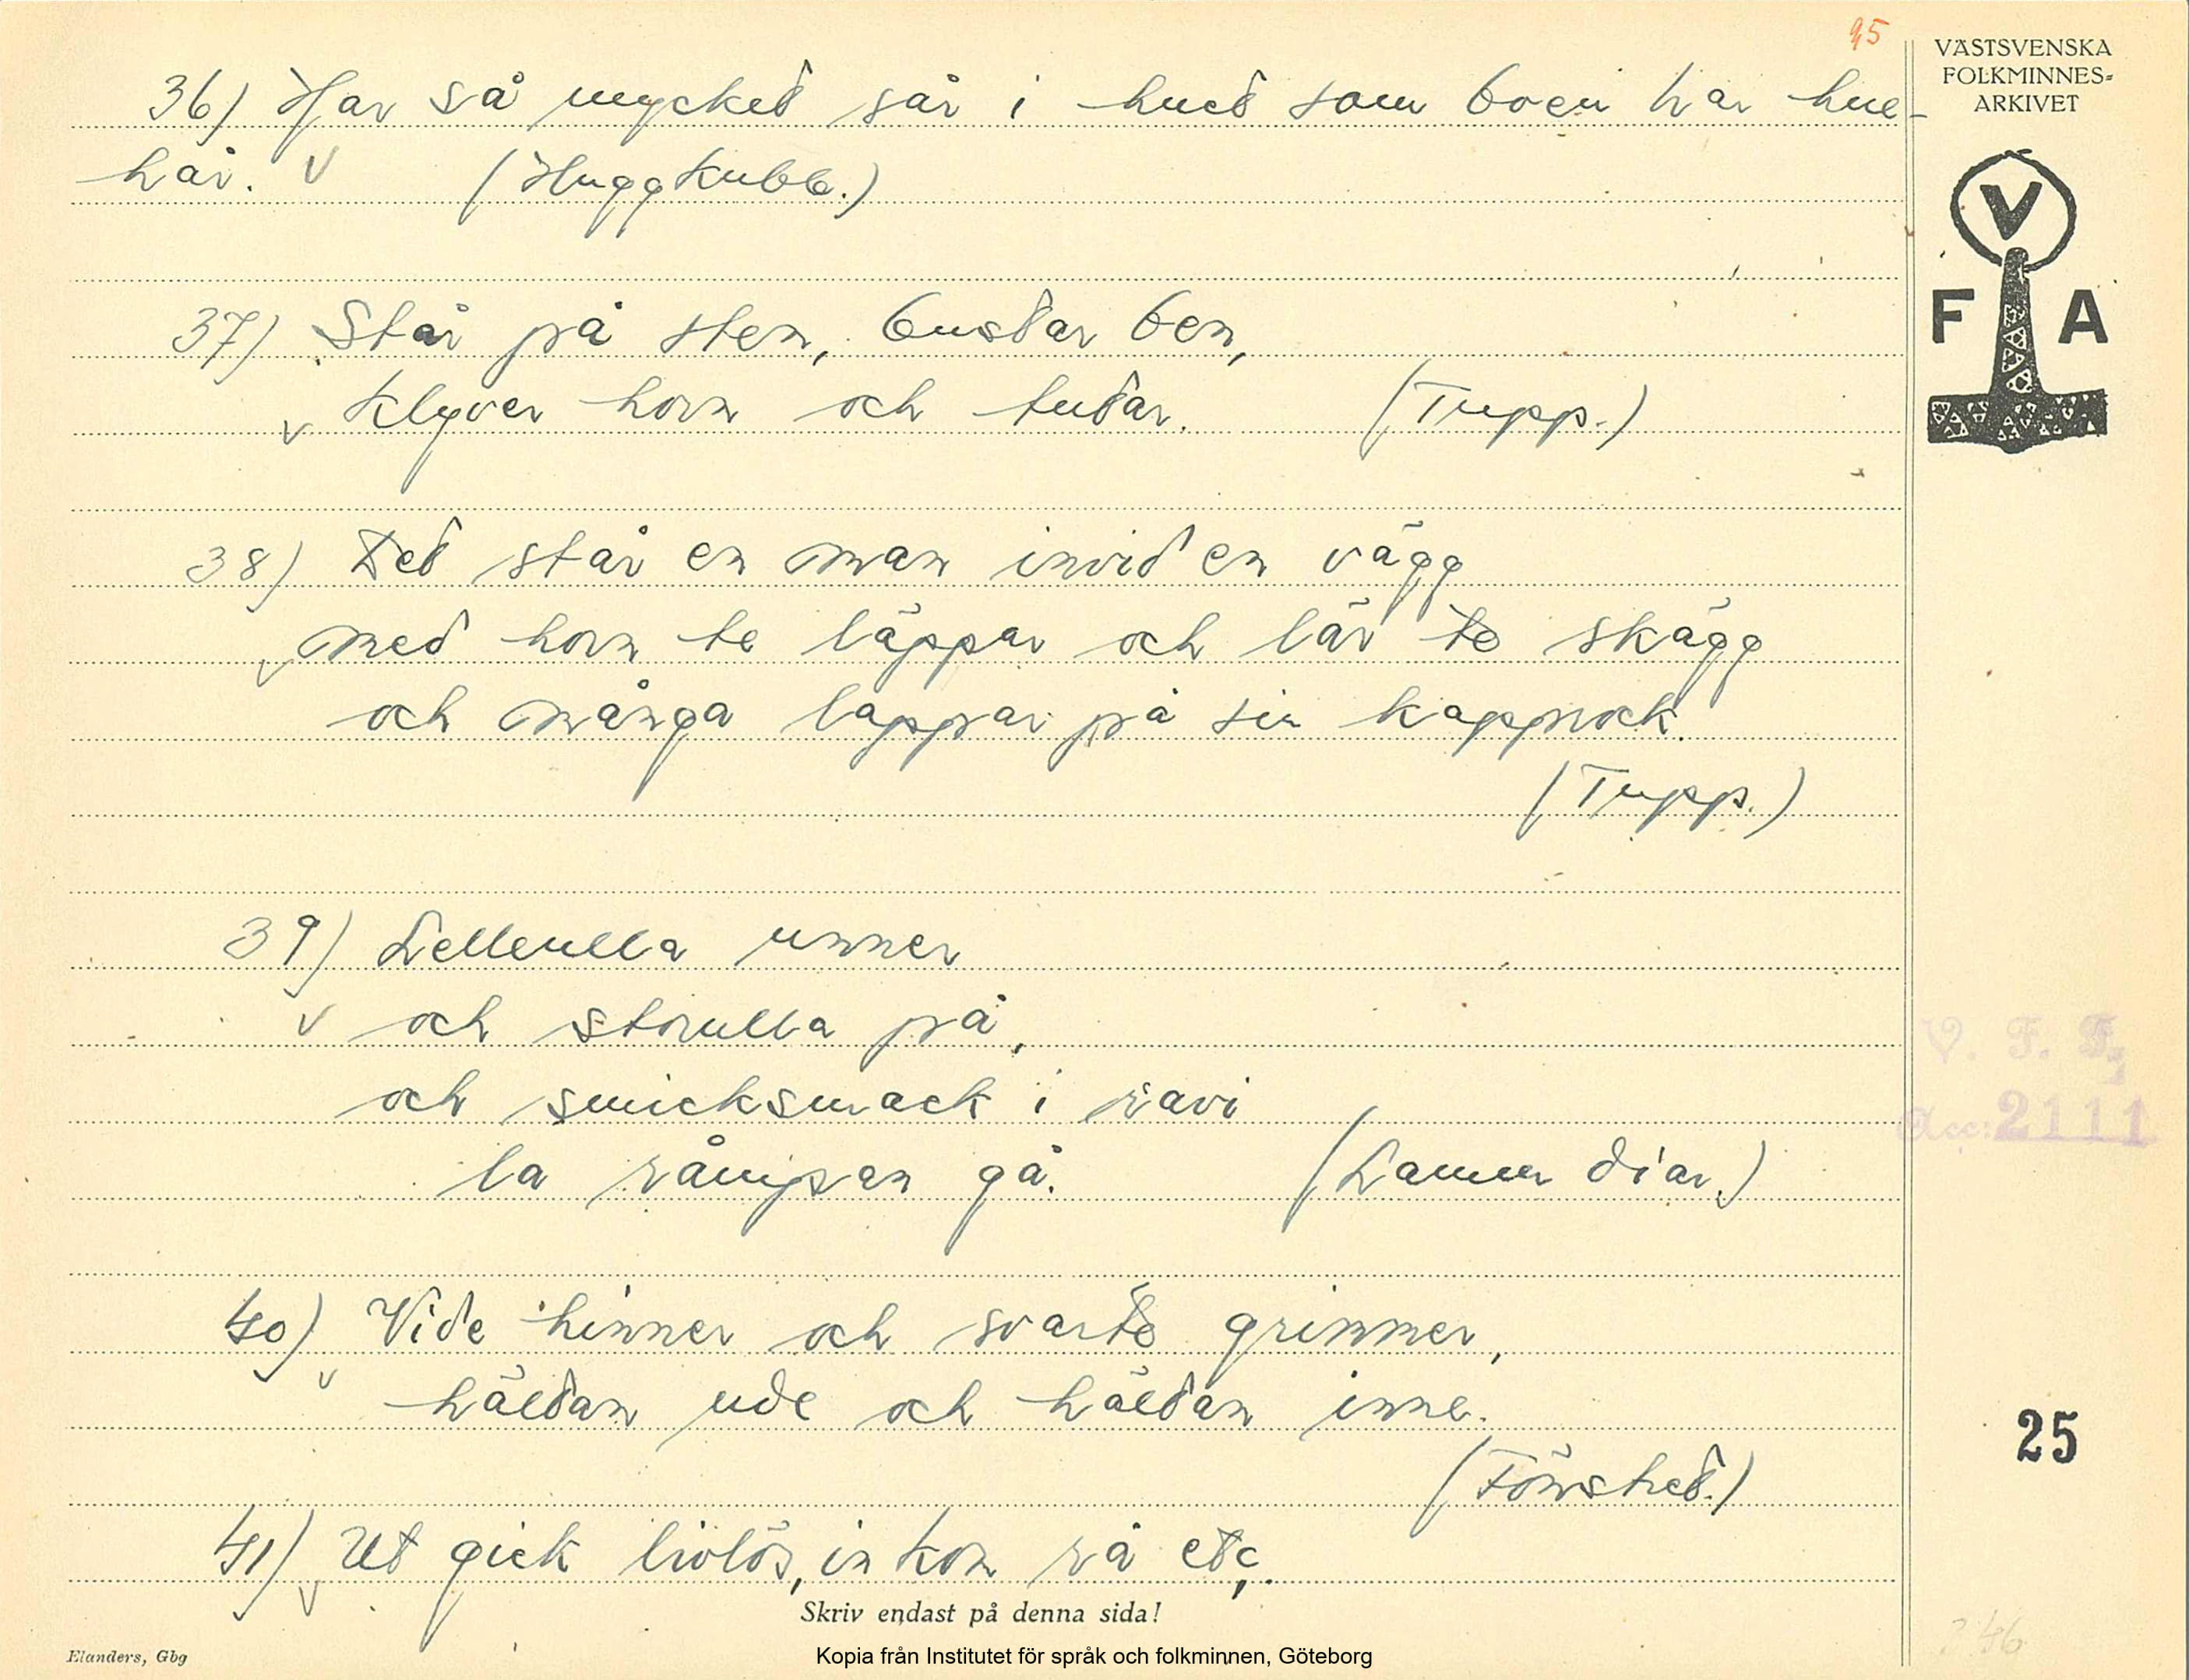 95
VÄSTSVENSKA
FOLKMINNES-
ARKIVET
V
F A
36) Har så mycket sår i huet som boen har hue-
hår. V (Huggkubb.)
37) Står på sten, bustar ben,
V Klyver horn och tutar. (Tupp.)
38) Det står en man invid en vägg
V med horn te läppar och lär te skägg
och många lappar på sin kapprock.
(Tupp.)
39) Lelleulla unner
V och storulla på,
och smicksmack i
la råmpan gå. (Lamm diar.)
40) Vide hinner och svarte grimmer,
V hältan ude och hältan inne.
(Fönstret.)
41) Ut gick livlös, in kom rå etc.
V
V. F. F.
Acc: 2111
25
346
Skriv endast på denna sida!
Elanders, Gbg
Kopia från Institutet för språk och folkminnen, Göteborg